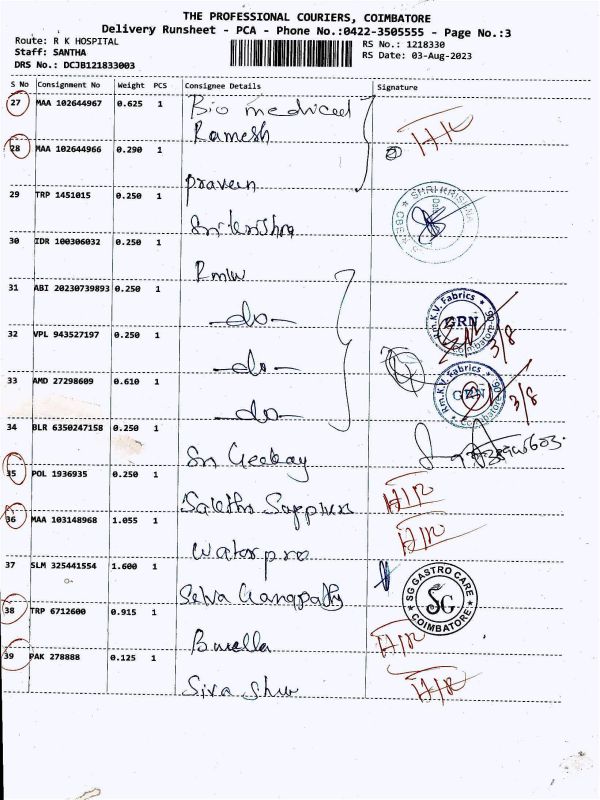 THE PROFESSIONAL COURIERS, COIMBATORE
Delivery Runsheet - PCA - Phone No.:0422-3505555 - Page No.:3
Route: R K HOSPITAL
RS No.: 1218330
Staff: SANTHA
RS Date: 03-Aug-2023
DRS No.: DCJB121833003
S No Consignment No Weight PCS Consignee Details Signature
27 MAA 102644967 0.625 1 Bio mediced
Ramesh
28 MAA 102644966 0.290 1
pravein
29 TRP 1451015 0.250 1
SHRI KRISHNA
30 IDR 100306032 0.250 1
31 ABI 20230739893 0.250 1
-do-
Rm.K.V. Fabrics
GRN
Coimbatore
3/8
32 VPL 943527197 0.250 1
-do-
33 AMD 27298609 0.610 1
Rm.K.V. Fabrics
GRN
Coimbatore
3/8
-do-
34 BLR 6350247158 0.250 1
35 POL 1936935 0.250 1
36 MAA 103148968 1.055 1
37 SLM 325441554 1.600 1
SG GASTRO CARE
SG
COIMBATORE
Selva Ganapathy
38 TRP 6712600 0.915 1
39 PAK 278888 0.125 1